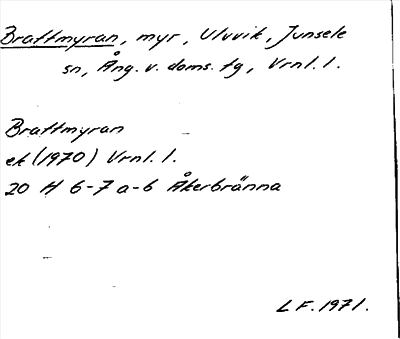 Brattmyran, myr, Uluvik, Junsele
sn, Ång. v. doms. tg, Vrnl. l.
Brattmyran
ek (1970) Vrnl. l.
20 H 6-7 a-b Åkerbränna
LF. 1971.